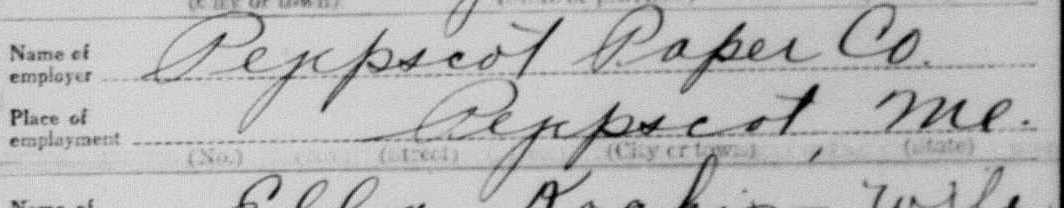 (City or town)
Name of employer Pejepscot Paper Co.
Place of employment Pejepscot, Me.
(No.) (Street) (City or town) (State)
Name of Ella wife